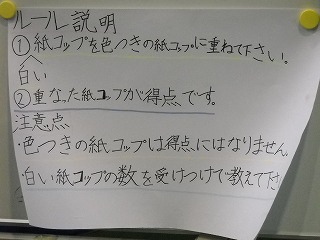 ルール説明
①紙コップを色つきの紙コップに重ねて下さい。
白い
②重なった紙コップが得点です。
注意点
・色つきの紙コップは得点にはなりません。
・白い紙コップの数を受けつけで教えて下さ